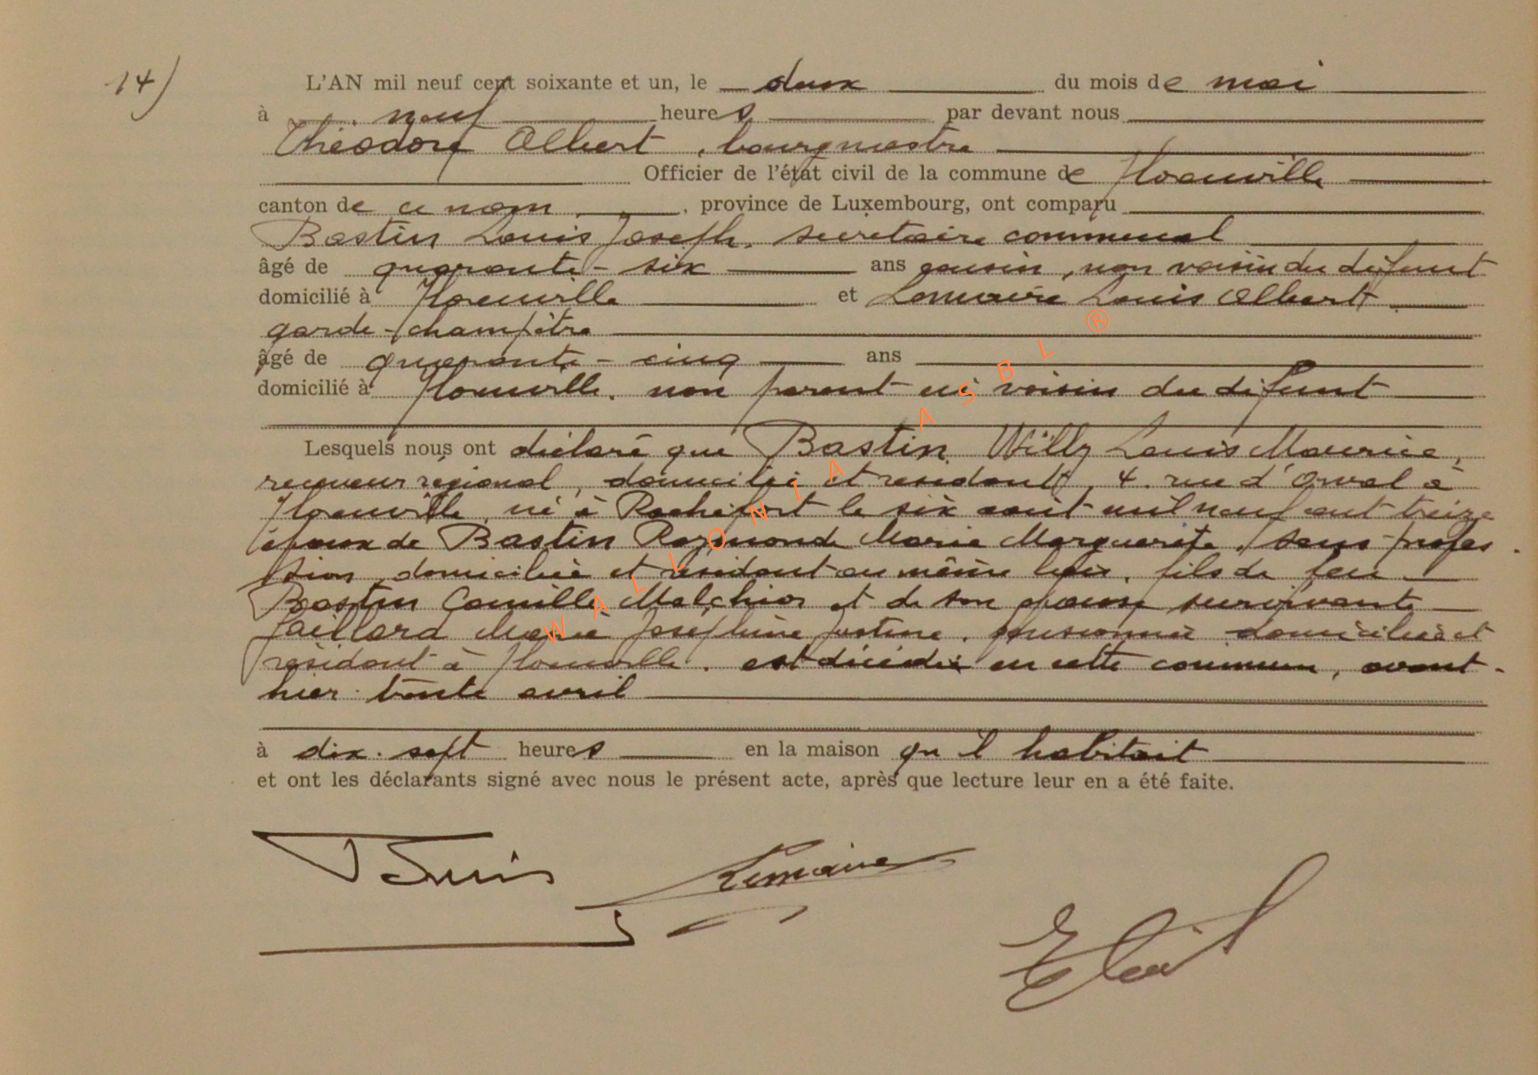 14)
L'AN mil neuf cent soixante et un, le deux du mois de mai
à neuf heures par devant nous
Théodore Albert, bourgmestre
Officier de l'état civil de la commune de Florenville
canton de ce nom, province de Luxembourg, ont comparu
Bastin Louis Joseph, secrétaire communal
âgé de quarante-six ans cousin, non voisin du défunt
domicilié à Florenville et Lemaire Louis Albert
garde-champêtre
âgé de quarante-cinq ans
domicilié à Florenville, non parent ni voisin du défunt
Lesquels nous ont déclaré que Bastin Willy Louis Maurice,
receveur régional, domicilié et résidant, 4, rue d'Orval à
Florenville, né à Rochefort le six août mil neuf cent treize
époux de Bastin Raymonde Marie Marguerite, sans profes-
sion, domiciliée et résidant au même lieu, fils de feu
Bastin Camille Melchior et de son épouse survivante
Jaillard Marie Joséphine Justine, pensionnée domiciliée et
résidant à Florenville, est décédé en cette commune, avant-
hier trente avril
à dix-sept heures en la maison qu'il habitait
et ont les déclarants signé avec nous le présent acte, après que lecture leur en a été faite.
Lemaire
WALLONIA ASBL ®